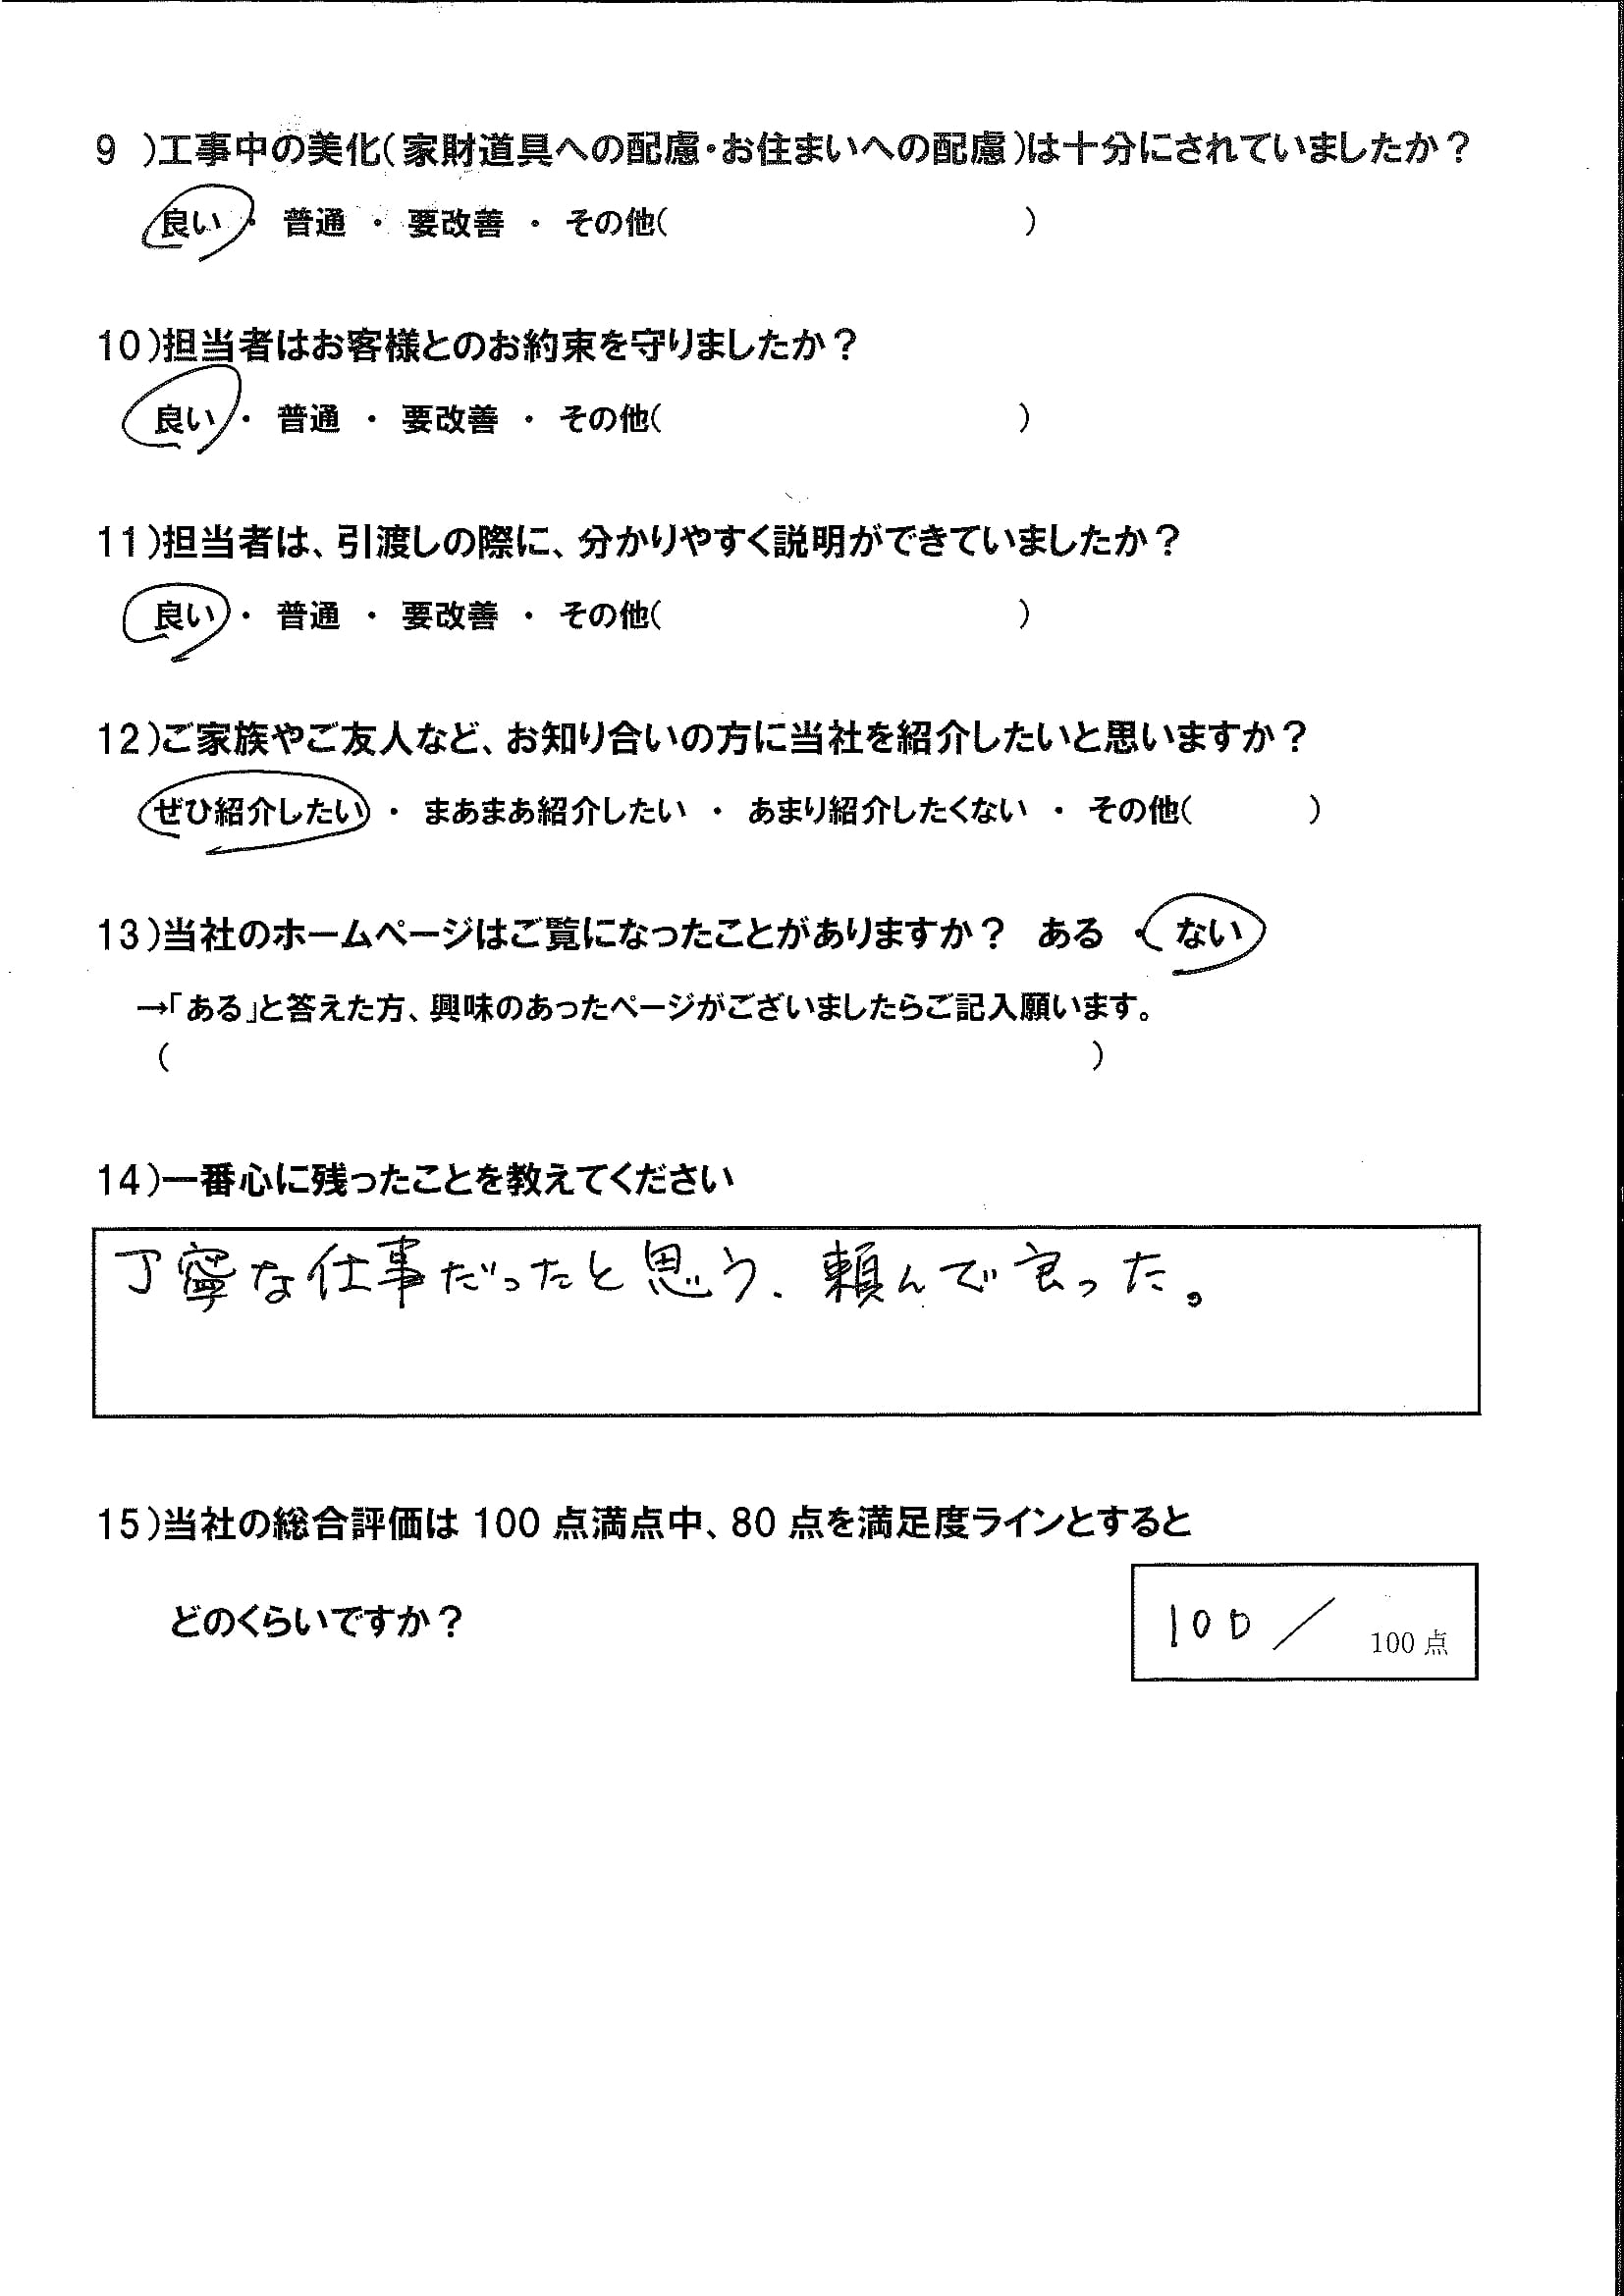 9 )工事中の美化(家財道具への配慮・お住まいへの配慮)は十分にされていましたか?
良い ・ 普通 ・ 要改善 ・ その他( )
10)担当者はお客様とのお約束を守りましたか?
良い ・ 普通 ・ 要改善 ・ その他( )
11)担当者は、引渡しの際に、分かりやすく説明ができていましたか?
良い ・ 普通 ・ 要改善 ・ その他( )
12)ご家族やご友人など、お知り合いの方に当社を紹介したいと思いますか?
ぜひ紹介したい ・ まあまあ紹介したい ・ あまり紹介したくない ・ その他( )
13)当社のホームページはご覧になったことがありますか? ある ・ ない
→「ある」と答えた方、興味のあったページがございましたらご記入願います。
( )
14)一番心に残ったことを教えてください
丁寧な仕事だったと思う、頼んで良った。
15)当社の総合評価は 100 点満点中、80 点を満足度ラインとすると
どのくらいですか?
100 / 100 点